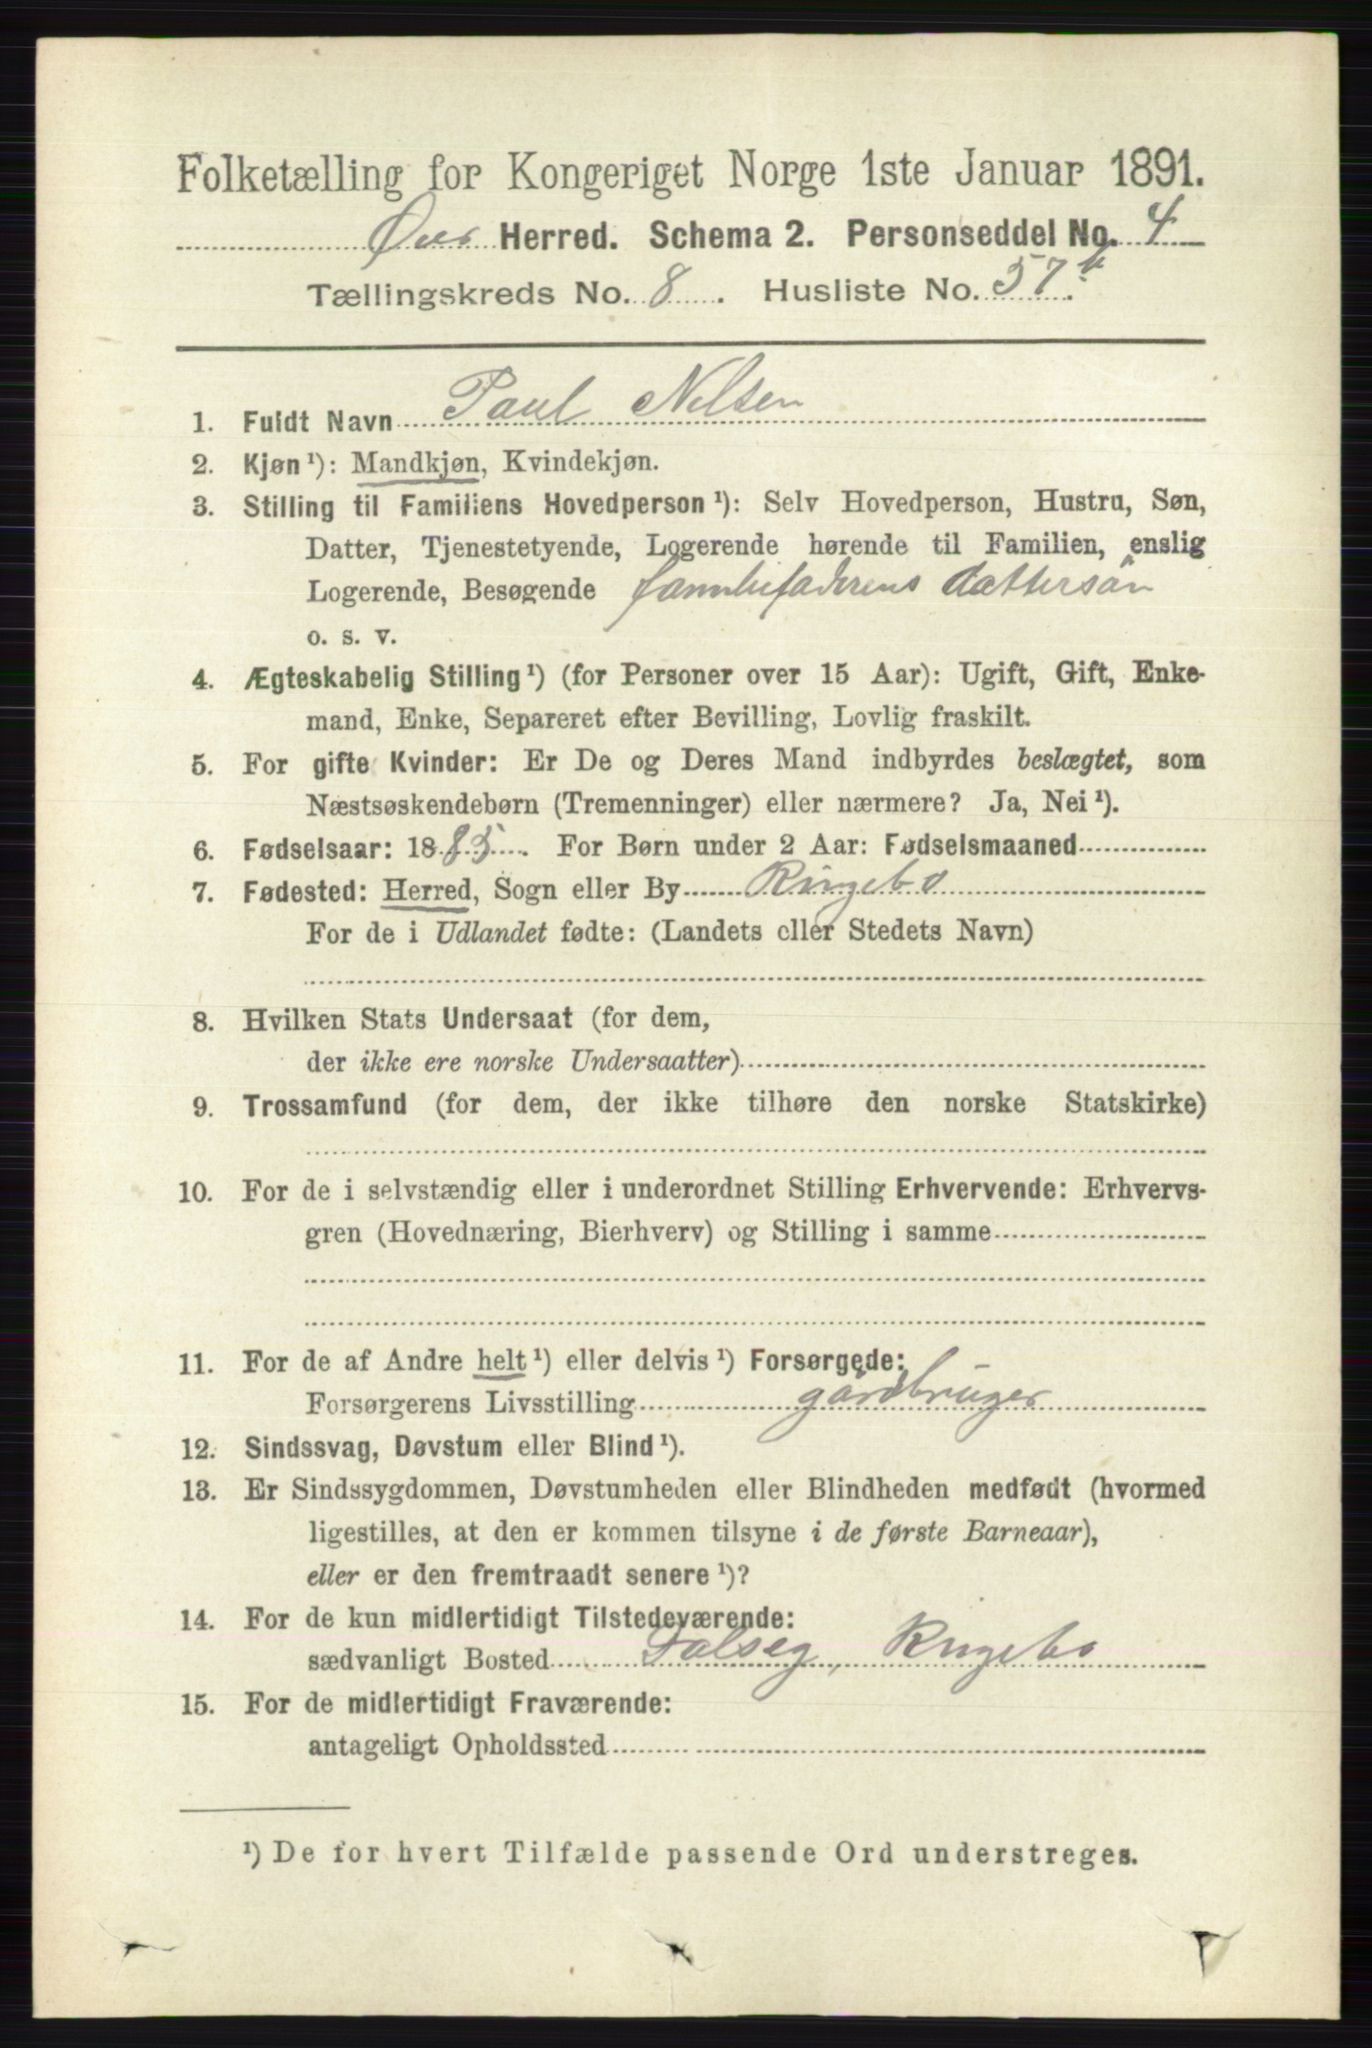 Folketælling for Kongeriget Norge 1ste Januar 1891.
Øier Herred. Schema 2. Personseddel No. 4
Tællingskreds No. 8. Husliste No. 57 b.
1. Fuldt Navn Paul Nelsen
2. Kjøn ¹): Mandkjøn, Kvindekjøn.
3. Stilling til Familiens Hovedperson ¹): Selv Hovedperson, Hustru, Søn,
Datter, Tjenestetyende, Logerende hørende til Familien, enslig
Logerende, Besøgende familiefaderens dattersön
o. s. v.
4. Ægteskabelig Stilling ¹) (for Personer over 15 Aar): Ugift, Gift, Enke-
mand, Enke, Separeret efter Bevilling, Lovlig fraskilt.
5. For gifte Kvinder: Er De og Deres Mand indbyrdes beslægtet, som
Næstsøskendebørn (Tremenninger) eller nærmere? Ja, Nei ¹).
6. Fødselsaar: 1885. For Børn under 2 Aar: Fødselsmaaned
7. Fødested: Herred, Sogn eller By Ringebo
For de i Udlandet fødte: (Landets eller Stedets Navn)
8. Hvilken Stats Undersaat (for dem,
der ikke ere norske Undersaatter)
9. Trossamfund (for dem, der ikke tilhøre den norske Statskirke)
10. For de i selvstændig eller i underordnet Stilling Erhvervende: Erhvervs-
gren (Hovednæring, Bierhverv) og Stilling i samme
11. For de af Andre helt ¹) eller delvis ¹) Forsørgede:
Forsørgerens Livsstilling gårdbruger
12. Sindssvag, Døvstum eller Blind ¹).
13. Er Sindssygdommen, Døvstumheden eller Blindheden medfødt (hvormed
ligestilles, at den er kommen tilsyne i de første Barneaar),
eller er den fremtraadt senere ¹)?
14. For de kun midlertidigt Tilstedeværende:
sædvanligt Bosted Dalseg, Ringebo
15. For de midlertidigt Fraværende:
antageligt Opholdssted
¹) De for hvert Tilfælde passende Ord understreges.